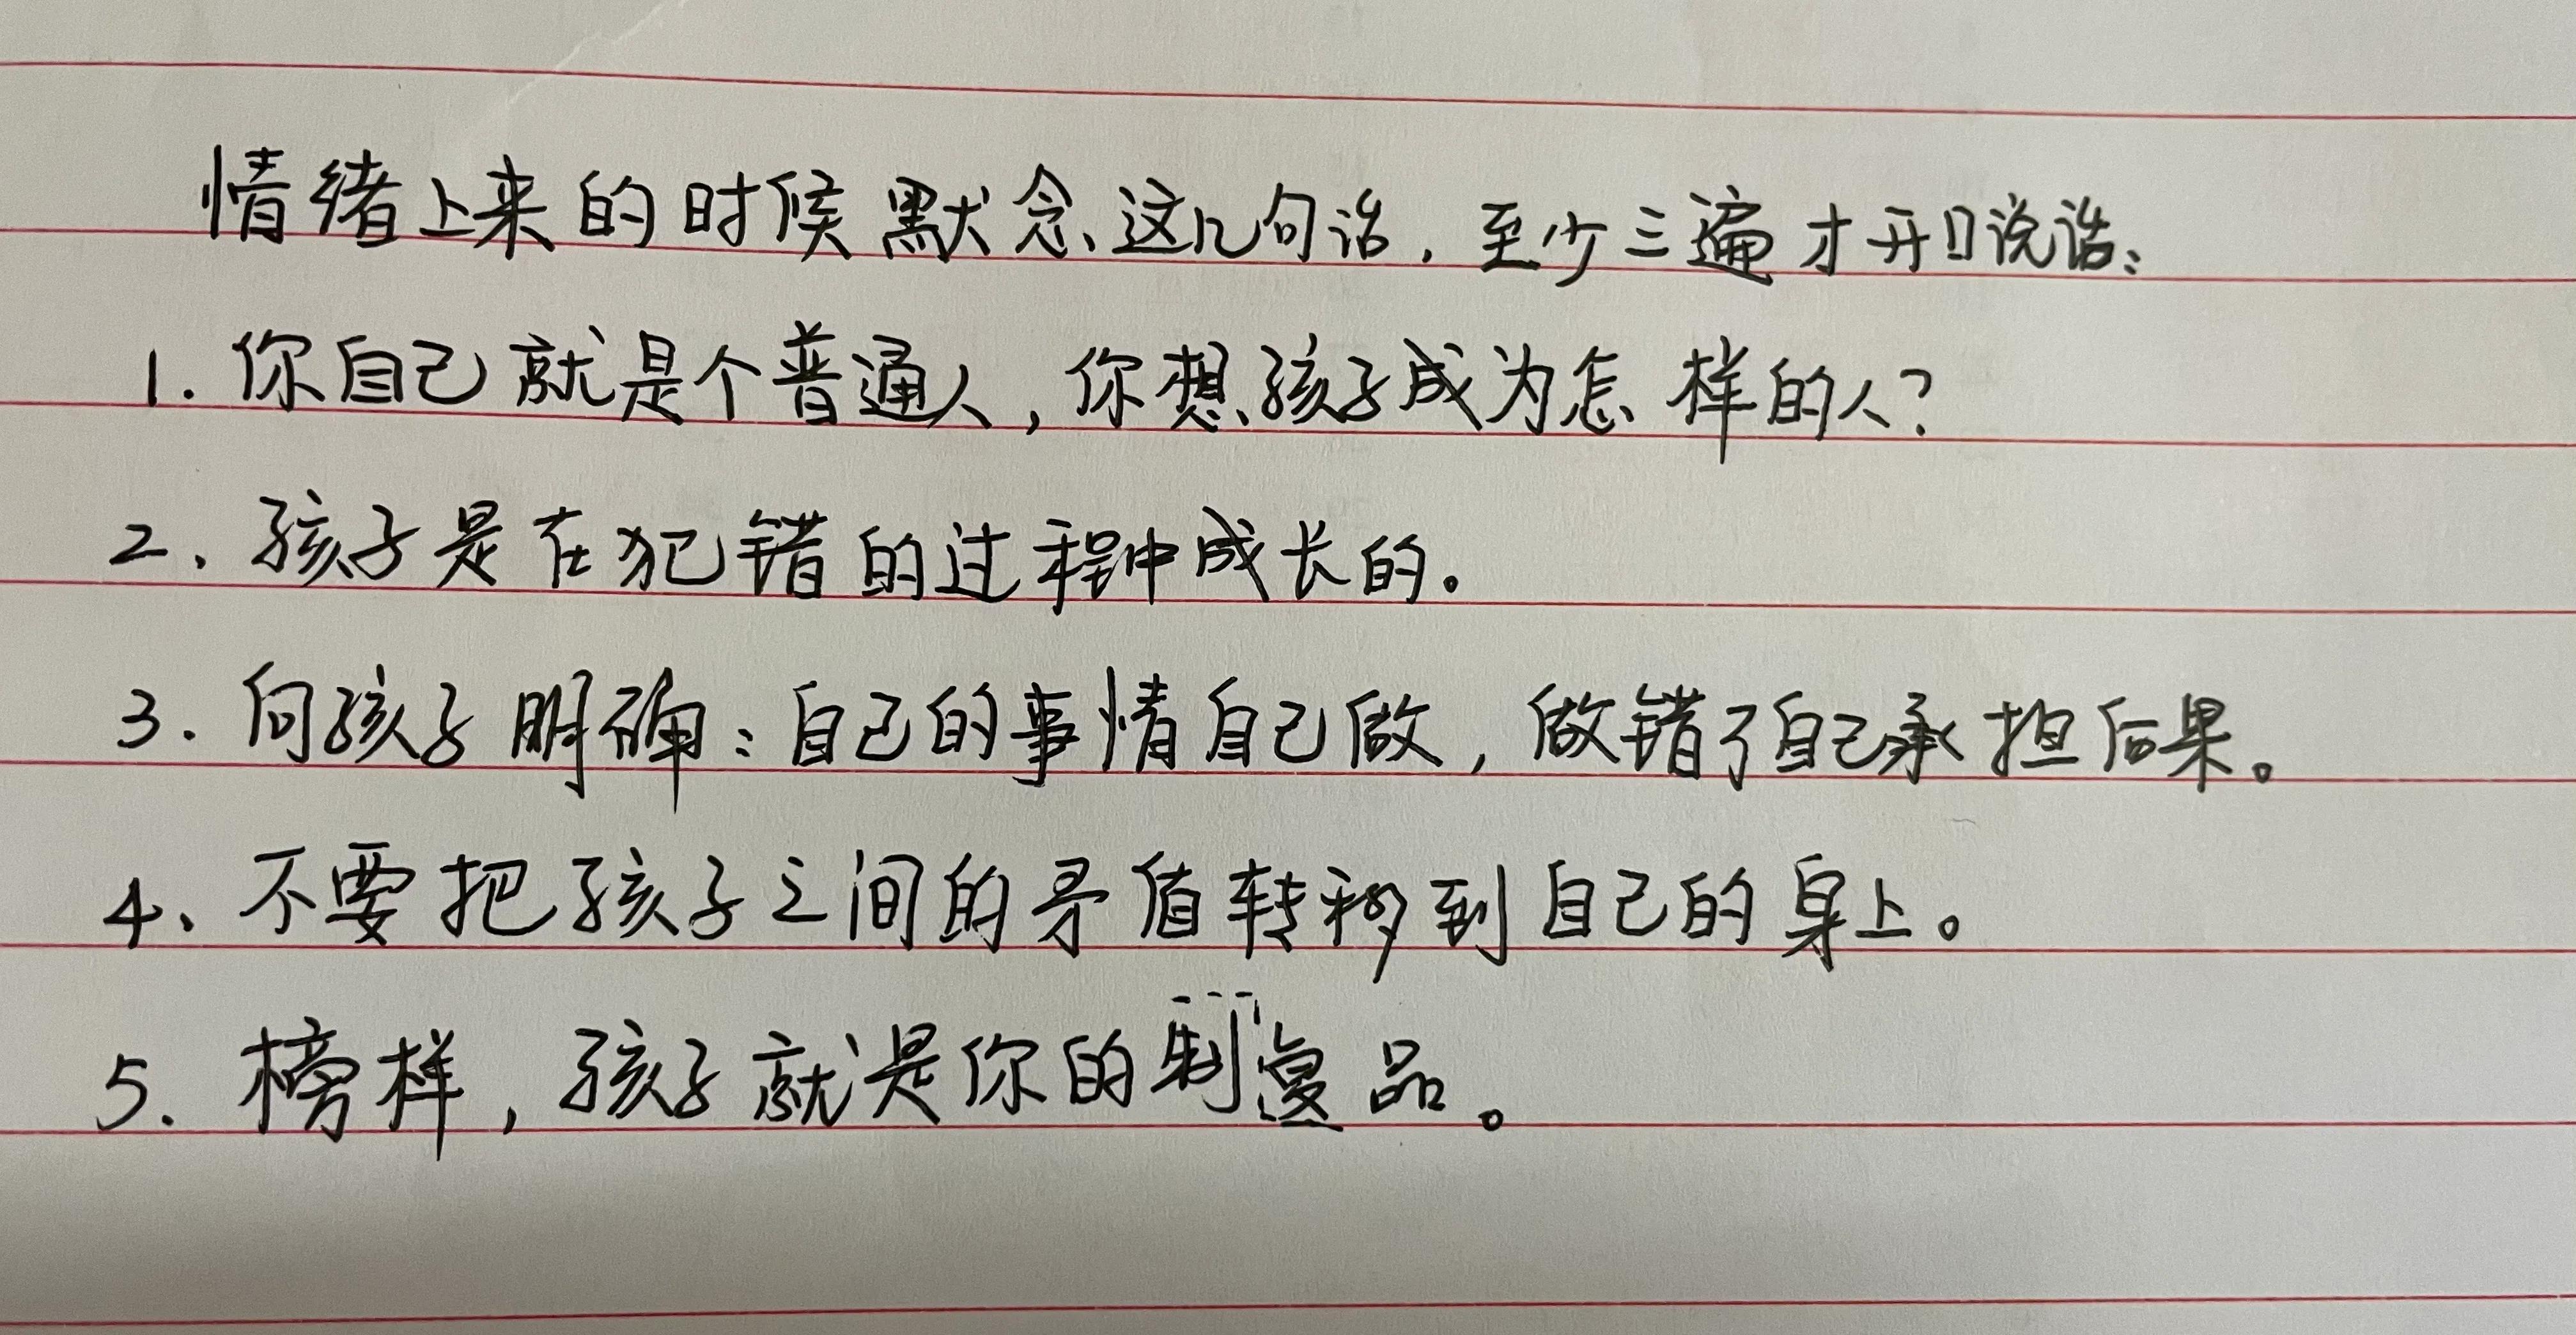 情绪上来的时候默念这几句话，至少三遍才开口说话：
1. 你自己就是个普通人，你想孩子成为怎样的人？
2、孩子是在犯错的过程中成长的。
3. 向孩子明确：自己的事情自己做，做错了自己承担后果。
4、不要把孩子之间的矛值转移到自己的身上。
5. 榜样，孩子就是你的制复品。